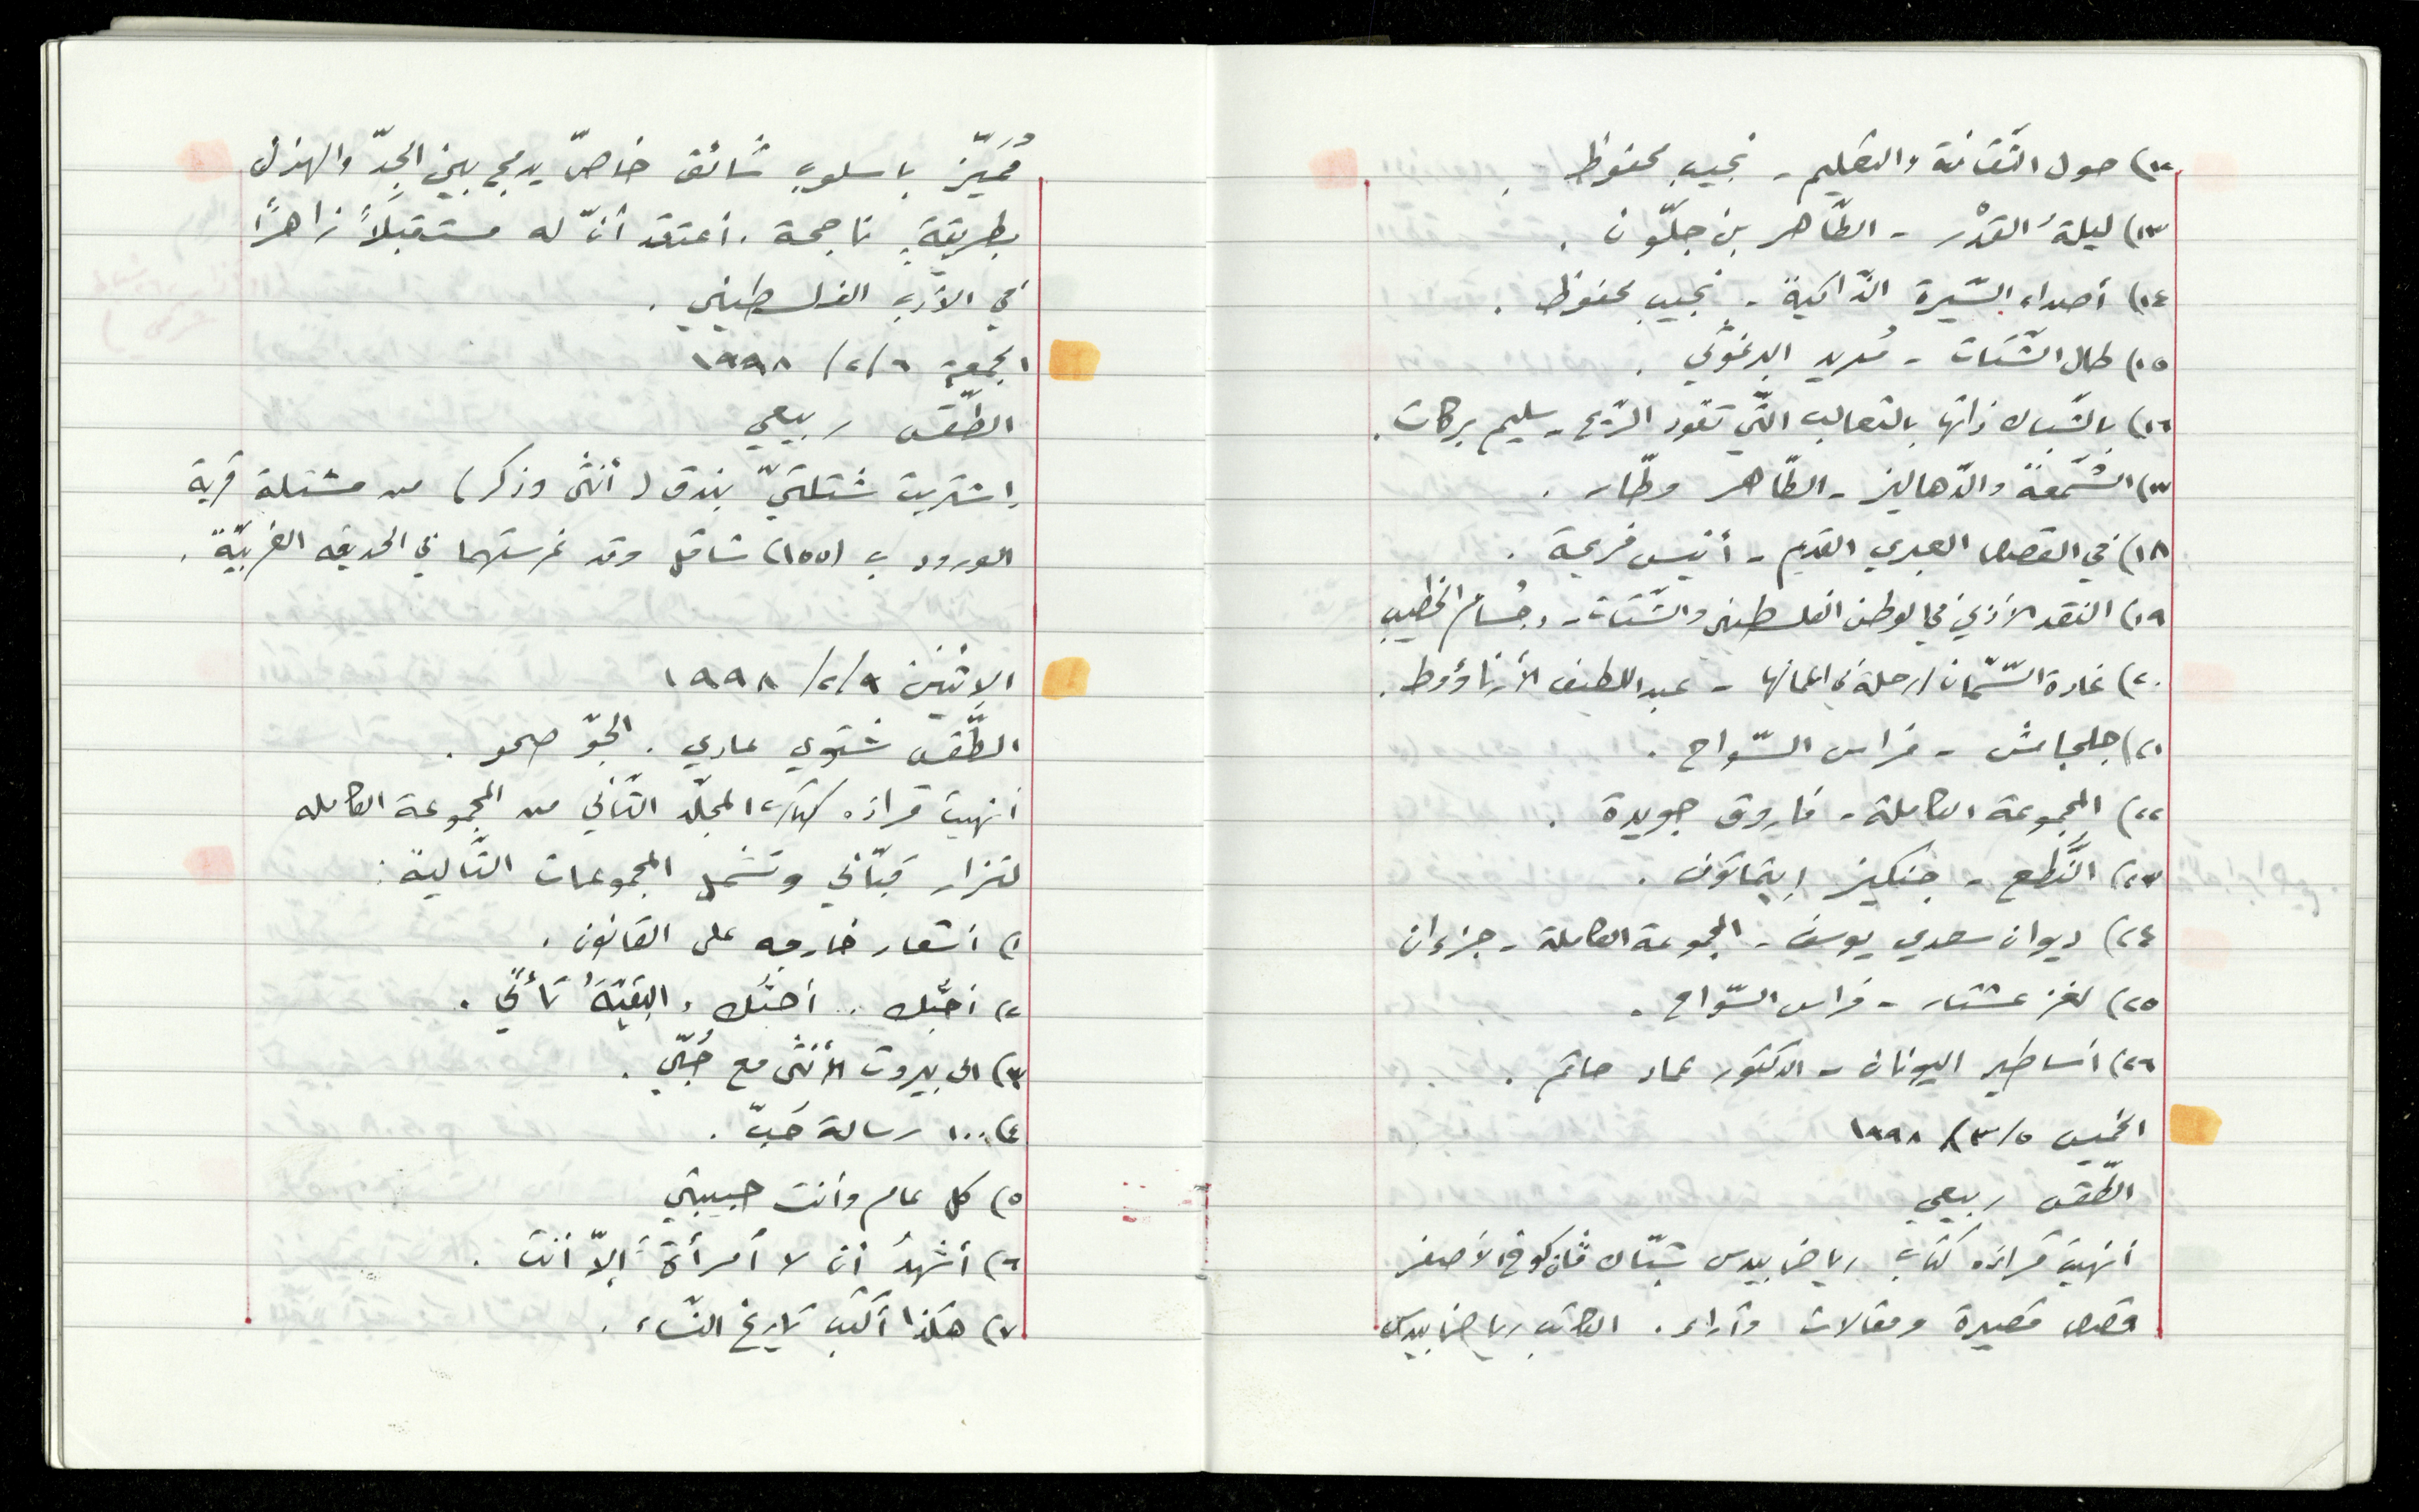 ١٢) حول الثّقافة والتعليم - نجيب محفوظ .
١٣) ليلةُ القدْر - الطّاهر بن جلّون .
١٤) أصداء السّيرة الذّاتية - نجيب محفوظ .
١٥) طال الشّتات - مُريد البرغوثي .
١٦) بالشّباك ذاتها بالثعالب الّتي تقود الرّيح - سليم بركات .
١٧) الشّمعة والدّهاليز - الطّاهر وطّار .
١٨) في القصص العبري القديم - أنيس فريحة .
١٩) النقد الأدبي في الوطن الفلسطيني والشّتات - د. حُسام الخطيب
٢٠) غادة السّمّان (رحلة في أعمالها - عبد اللطيف الأرناؤوط .
٢١) جلجامش - فراس السّواح .
٢٢) المجموعة الكاملة - فاروق جويدة .
٢٣) النَّطع - جنكيز إيتماتوف .
٢٤) ديوان سعدي يوسف - المجموعة الكاملة - جزءان
٢٥) لغز عشتار - فراس السّواح .
٢٦) أساطير اليونان - الدكتور عماد حاتم .
الخميس ٥/٣/١٩٩٨
الطّقس ربيعي
أنهيت قراءة كتاب رياض بيدس شبّاك ڤان كوخ الأصفر
قصص قصيرة ومقالات وآراء . الكاتب رياض بيدس
مُميّز باسلوب شائق خاصّ يدمج بين الجِدّ والهزل
بطريقةٍ ناجحة . أعتقد أنّ له مستقبلاً زاهرًا
في الأدب الفلسطيني .
الجمعة ٦/٢/١٩٩٨
الطّقس ربيعي
اشتريت شتلتيّ بندق (أنثى وذكر) من مشتلة قرية
الورود ب (١٥٥) شاقل وقد غرستهما في الحديقه الغربيّة .
الإثنين ٩/٢/١٩٩٨
الطّقس شتوي عادي . الجوّ صحو .
أنهيت قراءة كتاب المجلّد الثّاني من المجموعة الكامله
لنزار قبّاني وتشمل المجموعات التّالية :
١) أشعار خارجه على القانون .
٢) أحبّك .. أحبّك ، البقيّةُ تأتي .
٣) الى بيروت الأنثى مع حُبّي .
٤) ١٠٠ رسالة حُبّ .
٥) كل عام وأنت حبيبتي
٦) أشهدُ أن لا أمرأةً إلاّ أنت .
٧) هكذا أكتب تاريخ النّساء .